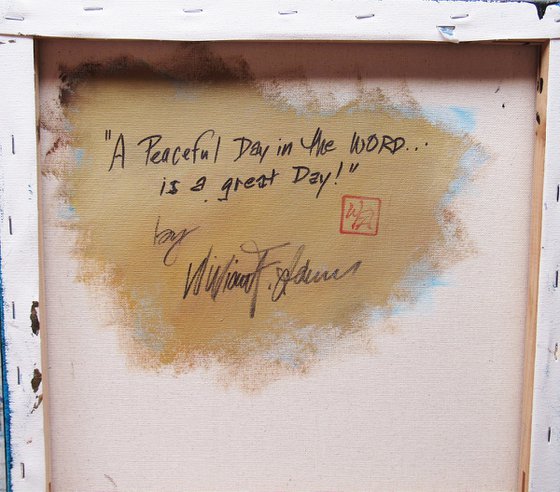 "A Peaceful Day in the WORD...
is a great Day!"
by
William F. Adams